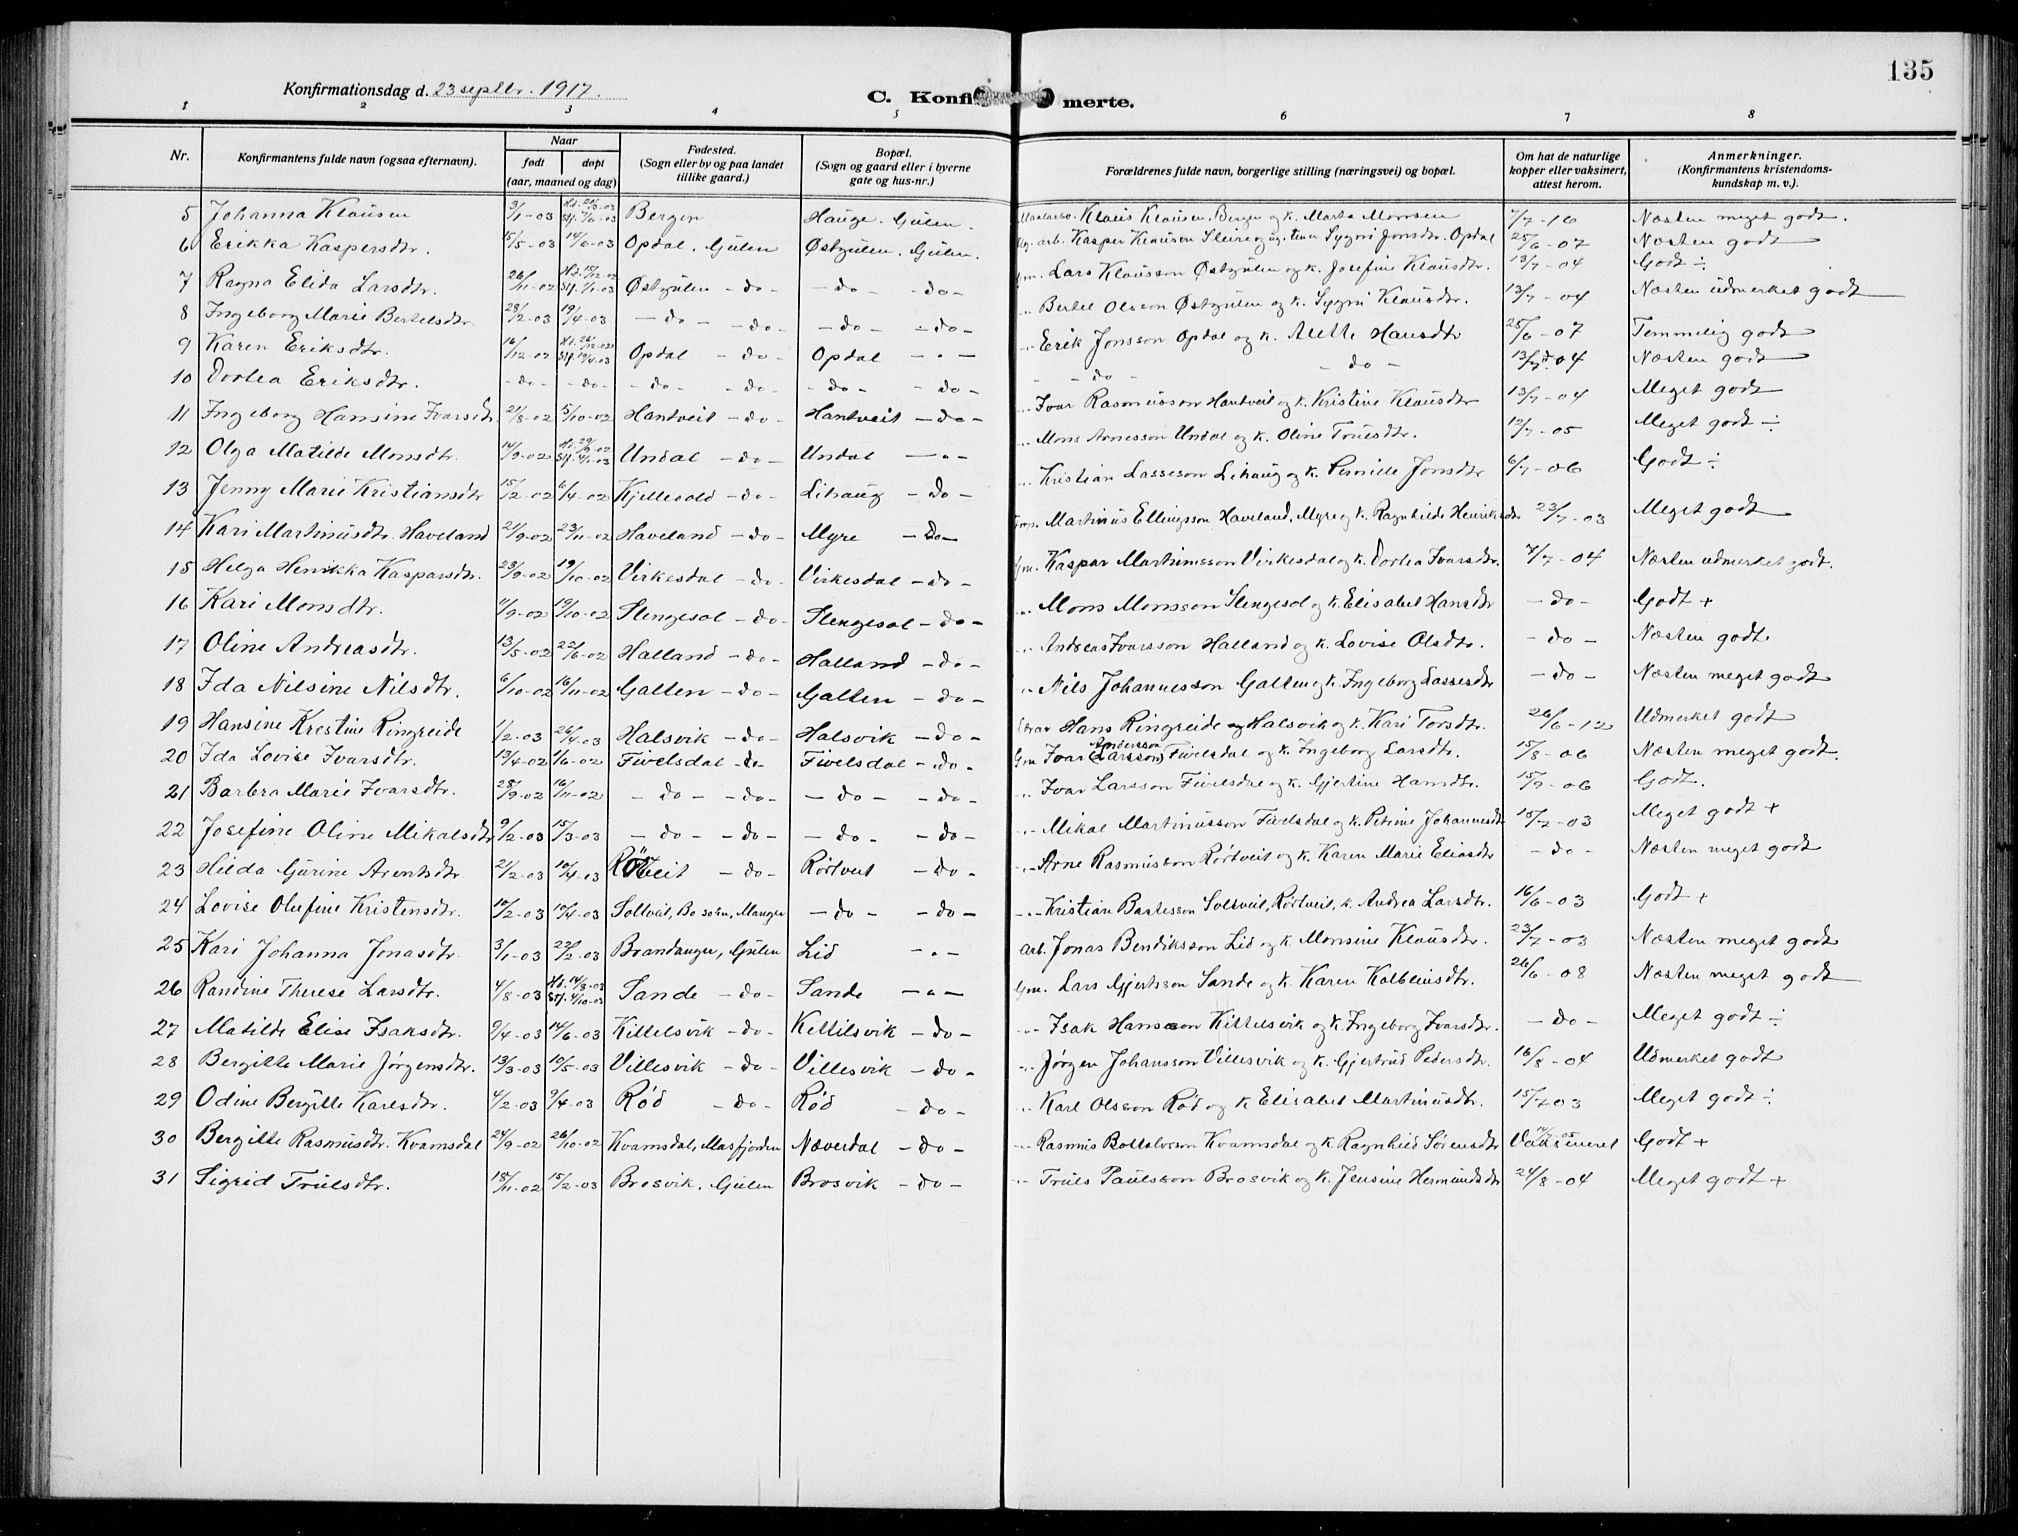 135
Konfirmationsdag d. 23 septbr. 1917.
C. Konfi merte.
1 2 3 4 5 6 7 8
Nr. Konfirmantens fulde navn (ogsaa efternavn). Naar født døpt (aar, maaned og dag) Fødested. (Sogn eller by og paa landet tillike gaard.) Bopæl. (Sogn og gaard eller i byerne gate og hus-nr.) Forældrenes fulde navn, borgerlige stilling (næringsvei) og bopæl. Om hat de naturlige kopper eller vaksinert, attest herom. Anmerkninger. (Konfirmantens kristendoms- kundskap m. v.).
5 Johanna Klausen 3/1-03 Bergen Hauge. Gulen. Klaus Klausen, Bergen og k. Marta Monsen 7/7-10 Næsten meget godt.
6 Erikka Kaspersdtr. 15/5-03 14/6-03 Opdal. Gulen Østgulen. Gulen. arb. Kasper Klausen Sleire og ug. tener Sygni Jonsdtr. Opdal 25/6-07 Næsten godt
7 Ragna Elida Larsdtr. 26/11-02 Hd. 15/12-02 Stf. 1/1-03 Østgulen -do- -do- -do- Gm. Lars Klausson Østgulen og k. Josefine Klausdtr. 13/7-04 Godt ÷
8 Ingeborg Marie Bertelsdtr. 28/2-03 19/4-03 -do- -do- -do- -do- " Bertel Olsson Østgulen og k. Sygni Klausdtr. 13/7-04 Næsten udmerket godt
9 Karen Eriksdtr. 16/12-02 Hd. 26/12-02 Stf. 19/4-03 Opdal -do- Opdal - " - " Erik Jonsson Opdal og k. Alette Hansdtr 25/6-07 Temmelig godt
10 Dortea Eriksdtr. -do- -do- -do- -do- -do- -do- - -do- -do- 13/7-04 Næsten godt
11 Ingeborg Hansine Ivarsdtr. 21/8-02 5/10-02 Hantveit -do- Hantveit -do- " Ivar Rasmusson Hantveit og k. Kristine Klausdtr 13/7-04 Meget godt
12 Olga Matilde Monsdtr. 14/9-02 Undal -do- Undal - " - " Mons Arnesson Undal og k. Oline Truesdtr. 12/7-05 Meget godt ÷
13 Jenny Marie Kristiansdtr 15/2-02 6/4-02 Kjellevold -do- Lihaug -do- " Kristian Lasseson Lihaug og k. Pernille Jonsdtr 6/7-06 Godt ÷
14 Kari Martinusdtr. Haveland 21/9-02 23/11-02 Haveland -do- Myre -do- Martinus Ellingsson Haveland, Myre og k. Ragnhilde Henriksdtr 23/7-03 Meget godt
15 Helga Henrikka Kasparsdtr. 23/9-02 19/10-02 Virkesdal -do- Virkesdal -do- Gm. Kaspar Martinusson Virkesdal og k. Dortea Ivarsdtr. 7/7-04 Næsten udmerket godt.
16 Kari Monsdtr. 4/9-02 19/10-02 Slengesol -do- Slengesol -do- " Mons Monsson Slengesol og k. Elisabet Hansdtr -do- Godt +
17 Oline Andreasdtr. 13/5-02 22/6-02 Halland -do- Halland -do- " Andreas Ivarsson Halland og k. Lovise Olsdtr. -do- Næsten godt.
18 Ida Nilsine Nilsdtr. 6/10-02 16/11-02 Galten -do- Galten -do- " Nils Johannesson Galten og k. Ingeborg Lassesdtr -do- Næsten meget godt
19 Hansine Krestine Ringreide 1/2-03 26/4-03 Halsvik -do- Halsvik -do- Hans Ringreide og Halsvik og k. Kari Torsdtr. 26/6-12 Udmerket godt
20 Ida Lovise Ivarsdtr. 13/4-02 1/6-02 Fivelsdal -do- Fivelsdal -do- Gm Ivar Andersson (Larsson) Fivelsdal og k. Ingeborg Larsdtr. 15/8-06 Næsten meget godt.
21 Barbra Marie Ivarsdtr. 28/9-02 16/11-02 -do- -do- -do- -do- " Ivar Larsson Fivelsdal og k. Gjertine Hansdtr. 15/9-06 Godt.
22 Josefine Oline Mikalsdtr 9/2-03 15/3-03 -do- -do- -do- -do- " Mikal Martinusson Fivelsdal og k. Petrine Johannesdtr 15/7-03 Meget godt +
23 Hilda Gurine Arentsdtr 21/2-03 10/4-03 Rötveit -do- Rörtveit -do- " Arne Rasmusson Rörtveit og k. Karen Marie Eliasdtr -do- Næsten meget godt
24 Lovise Olufine Kristensdtr. 10/2-03 10/4-03 Soltveit, Bo sokn, Manger -do- -do- " Kristian Bastesson Soltveit, Rörtveit, k. Andrea Larsdtr. 16/6-03 Godt +
25 Kari Johanna Jonasdtr. 3/1-03 22/2-03 Brandanger, Gulen Lid - " - arb. Jonas Bendiksson Lid og k. Monsine Klausdtr. 23/7-03 Næsten meget godt
26 Randine Therese Larsdtr. 4/8-03 Hd. 14/8-03 Stf. 4/10-03 Sande -do- Sande - " - Gm. Lars Gjertsson Sande og k. Karen Kolbeinsdtr. 26/6-08 Næsten meget godt
27 Matilde Elise Isaksdtr. 9/4-03 14/6-03 Kittelsvik -do- Kittilsvik -do- " Isak Hansson Kittelsvik og k. Ingeborg Ivarsdtr. -do- Meget godt ÷
28 Bergitte Marie Jørgensdtr. 13/3-03 10/5-03 Villesvik -do- Villesvik -do- " Jørgen Johansson Villesvik og k. Gjertrud Pedersdtr. 16/8-04 Udmerket godt
29 Odine Bergitte Karlsdtr. 4/2-03 9/4-03 Rød -do- Rød -do- " Karl Olsson Rød og k Elisabet Martinusdtr. 15/7-03 Meget godt ÷
30 Bergitte Rasmusdtr. Kvamsdal 24/9-02 26/10-02 Kvamsdal, Masfjorden Næverdal -do- " Rasmus Bottolvson Kvamsdal og k. Ragnhild Sørensdtr Vaksineret Godt +
31 Sigrid Trulsdtr. 18/11-02 15/2-03 Brosvik, Gulen Brosvik -do- " Truls Paulsson Brosvik og k. Jensine Hermundsdtr 24/8-04 Meget godt +